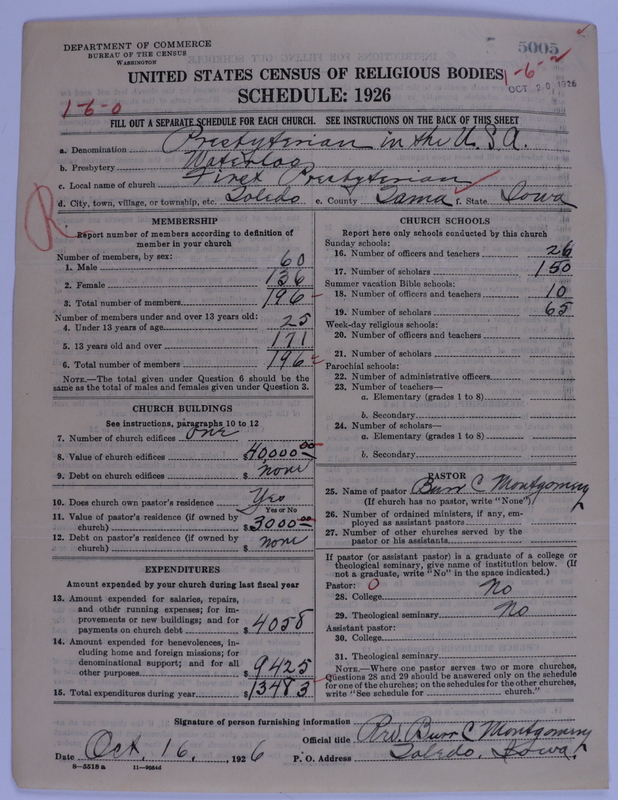 DEPARTMENT OF COMMERCE
BUREAU OF THE CENSUS
WASHINGTON
5005
1-6-2
OCT 20 1926
UNITED STATES CENSUS OF RELIGIOUS BODIES
SCHEDULE: 1926
1-6-0
FILL OUT A SEPARATE SCHEDULE FOR EACH CHURCH. SEE INSTRUCTIONS ON THE BACK OF THIS SHEET
a. Denomination Presbyterian in the U.S.A.
b. Presbytery Waterloo
c. Local name of church First Presbyterian
d. City, town, village, or township, etc. Toledo e. County Tama f. State Iowa
R.
MEMBERSHIP
Report number of members according to definition of
member in your church
Number of members, by sex:
1. Male 60
2. Female 136
3. Total number of members 196
Number of members under and over 13 years old:
4. Under 13 years of age 25
5. 13 years old and over 171
6. Total number of members 196
NOTE.—The total given under Question 6 should be the
same as the total of males and females given under Question 3.
CHURCH BUILDINGS
See instructions, paragraphs 10 to 12
7. Number of church edifices One
8. Value of church edifices $40,000.00
9. Debt on church edifices $ none
10. Does church own pastor's residence Yes
Yes or No
11. Value of pastor's residence (if owned by
church) $3000.00
12. Debt on pastor's residence (if owned by
church) $ none
EXPENDITURES
Amount expended by your church during last fiscal year
13. Amount expended for salaries, repairs,
and other running expenses; for im-
provements or new buildings; and for
payments on church debt $4058
14. Amount expended for benevolences, in-
cluding home and foreign missions; for
denominational support; and for all
other purposes $9425
15. Total expenditures during year $13483
CHURCH SCHOOLS
Report here only schools conducted by this church
Sunday schools:
16. Number of officers and teachers 26
17. Number of scholars 150
Summer vacation Bible schools:
18. Number of officers and teachers 10
19. Number of scholars 65
Week-day religious schools:
20. Number of officers and teachers
21. Number of scholars
Parochial schools:
22. Number of administrative officers
23. Number of teachers—
a. Elementary (grades 1 to 8)
b. Secondary
24. Number of scholars—
a. Elementary (grades 1 to 8)
b. Secondary
PASTOR
25. Name of pastor Burr C Montgomery
(If church has no pastor, write "None")
26. Number of ordained ministers, if any, em-
ployed as assistant pastors
27. Number of other churches served by the
pastor or his assistants
If pastor (or assistant pastor) is a graduate of a college or
theological seminary, give name of institution below. (If
not a graduate, write "No" in the space indicated.)
Pastor: O
28. College No
29. Theological seminary No
Assistant pastor:
30. College
31. Theological seminary
NOTE.—Where one pastor serves two or more churches,
Questions 28 and 29 should be answered only on the schedule
for one of the churches; on the schedules for the other churches,
write "See schedule for church."
Signature of person furnishing information
Official title Rev. Burr C Montgomery
Date Oct. 16, 1926 P. O. Address Toledo, Iowa
8—5518 a